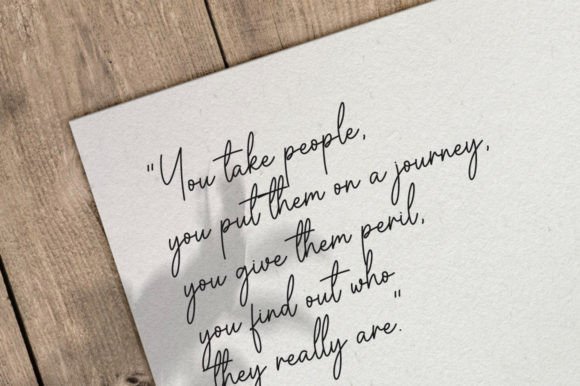 "You take people,
you put them on a journey,
you give them peril,
you find out who
they really are."